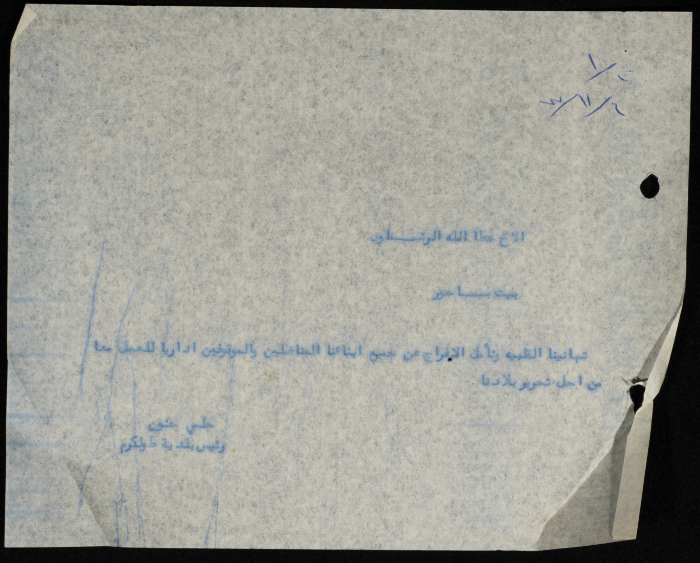 الاخ عطا الله الرشماوي
بيت ساحور
تهانينا القلبيه ونأمل الافراج عن جميع ابنائنا المناضلين والموقوفين اداريا للعمل معا
من اجل تحرير بلادنا
حلمي حنون
رئيس بلدية طولكرم